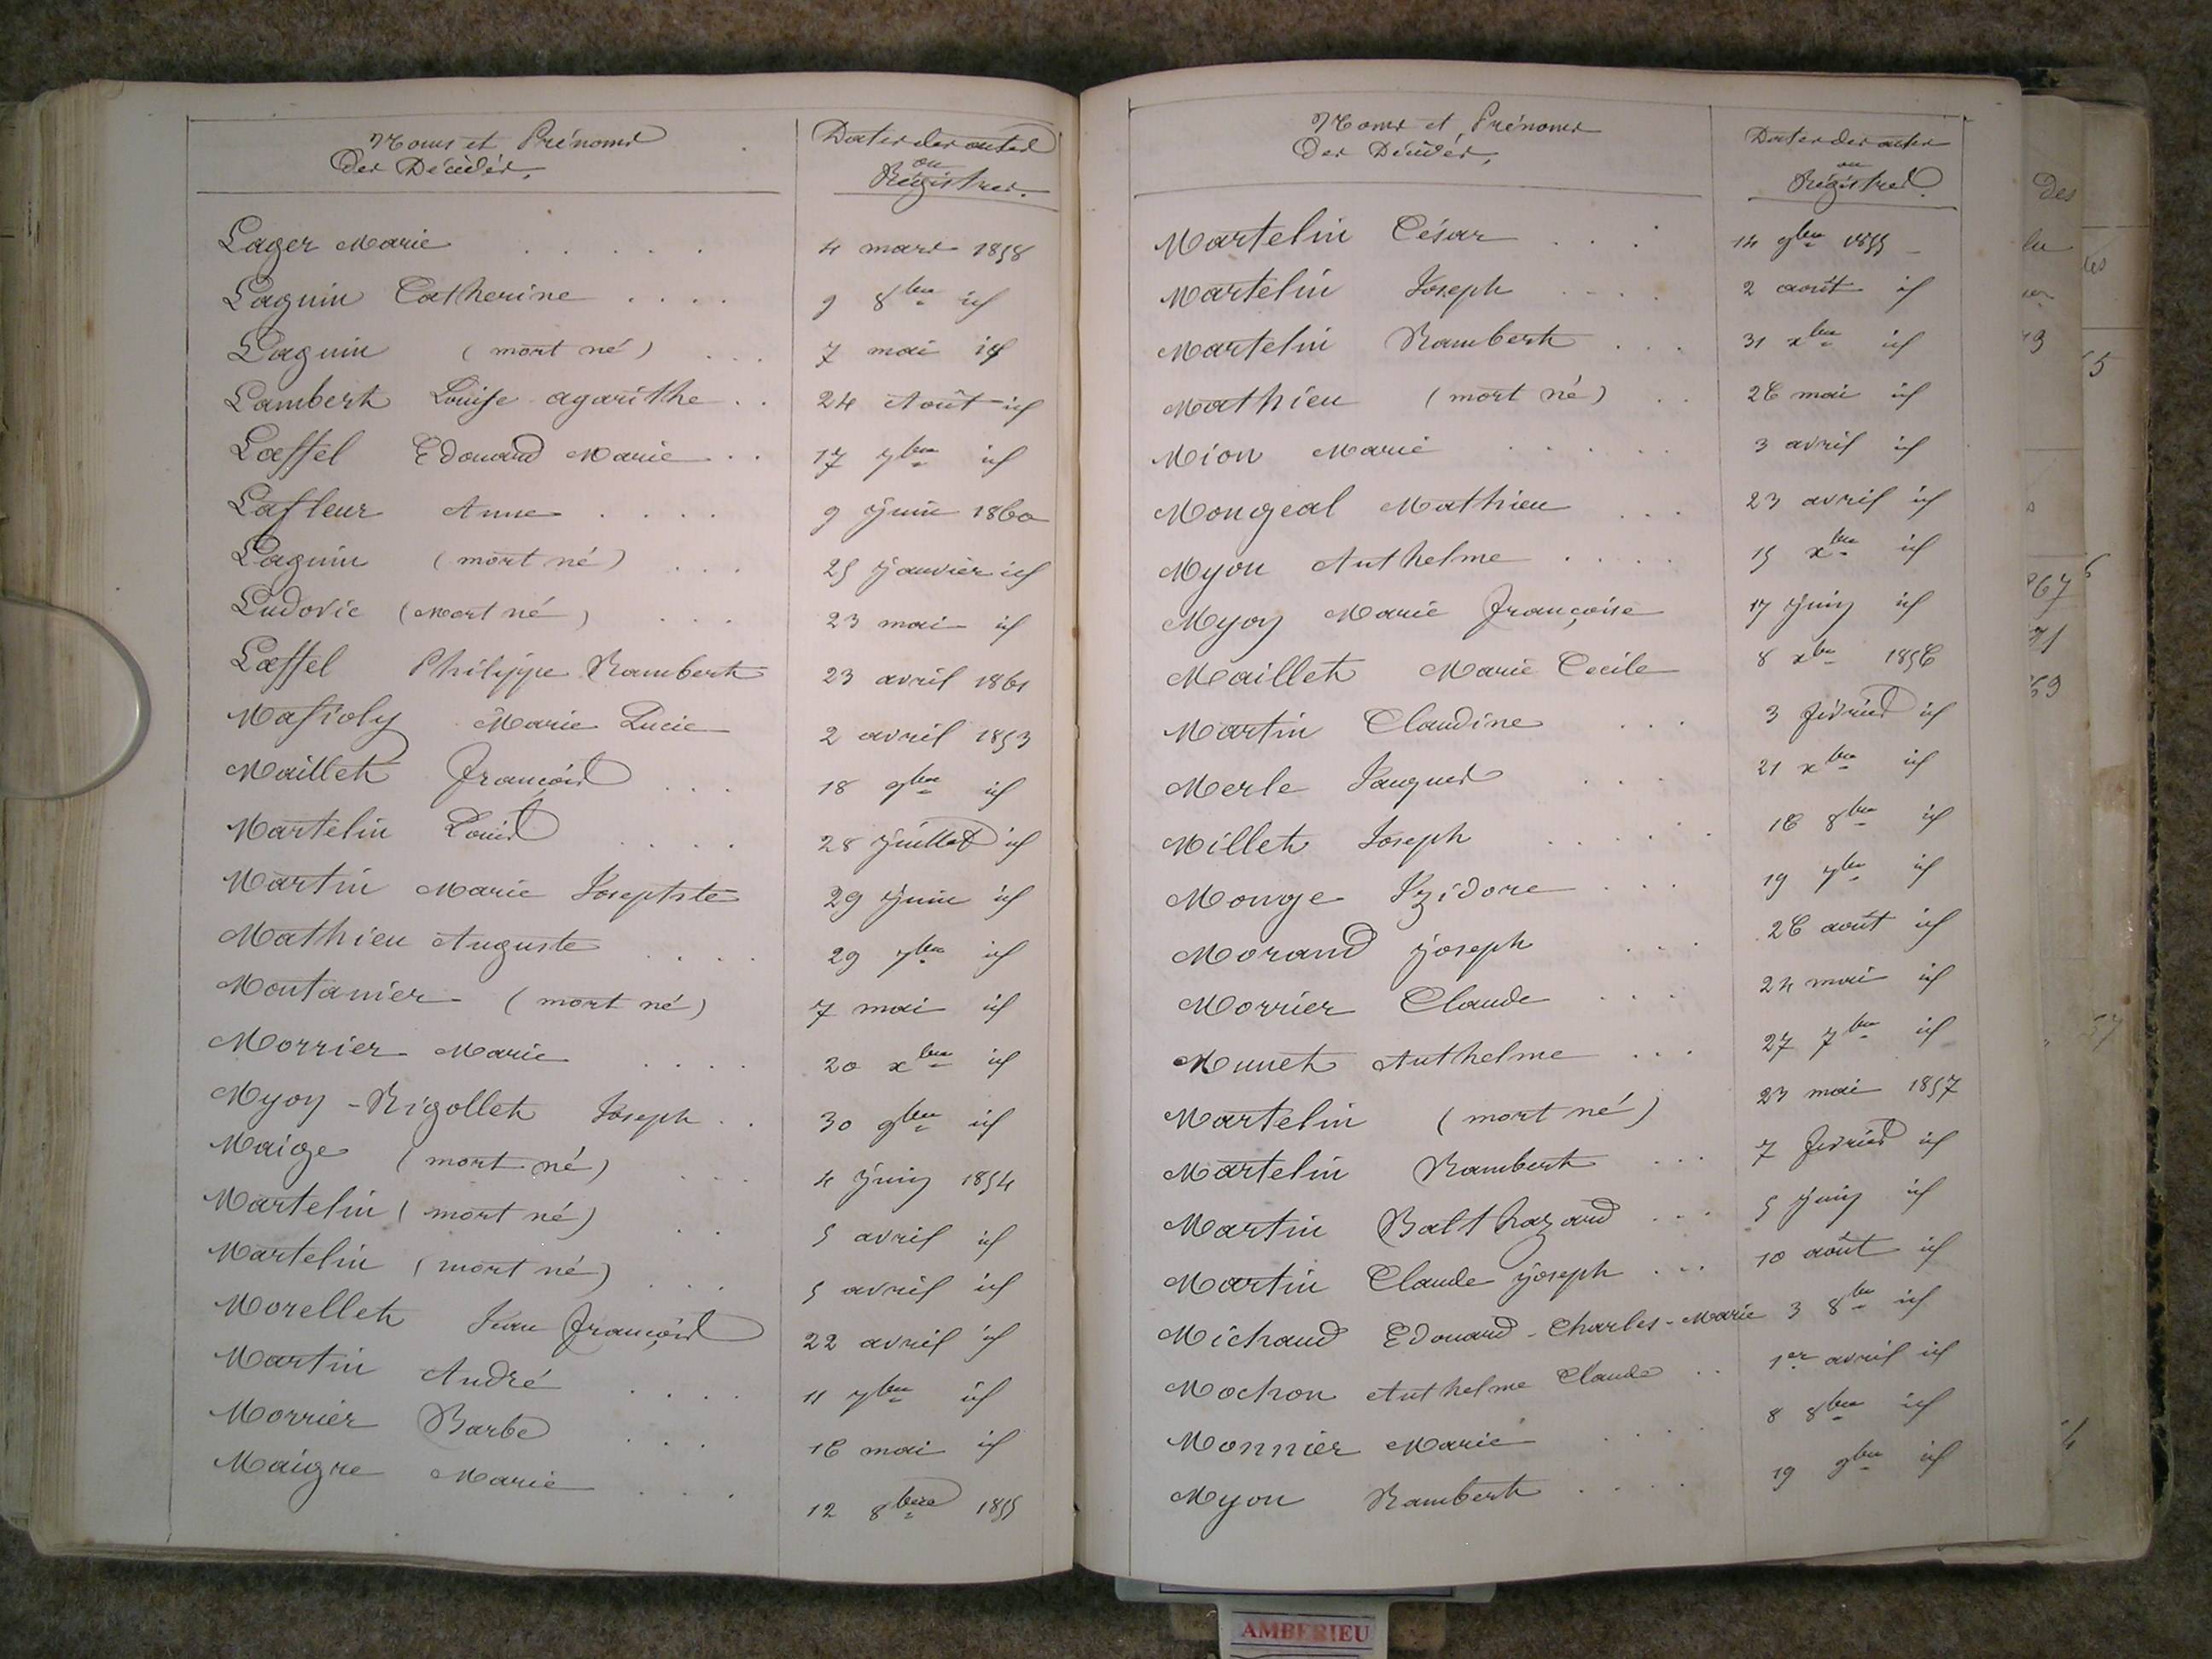 Noms et Prénoms
Des Décédés.
Dates des actes
ou
Régistres.
Lager Marie . . . . . 4 mars 1858
Laguin Catherine . . . . 9 8bre id
Laguin (mort né) . . . 7 mai id
Lambert Louise agarithe . . 24 Août id
Lœffel Edouard Marie . . 17 7bre id
Lafleur Anne . . . . 9 Juin 1860
Laguin (mort né) . . . 25 Janvier id
Ludovic (Mort né) . . . 23 mai id
Lœffel Philippe Rambert 23 avril 1861
Mafioly Marie Lucie 2 avril 1853
Maillet François . . . 18 9bre id
Martelin Louis . . . . 28 Juillet id
Martin Marie Josephte 29 Juin id
Mathieu Auguste . . . . 29 7bre id
Montanier (mort né) 7 mai id
Morrier Marie . . . . 20 xbre id
Myon-Rigollet Joseph . . 30 9bre id
Maige (mort né) . . . 4 Juin 1854
Martelin (mort né) . . 5 avril id
Martelin (mort né) . . . 5 avril id
Morellet Jean François 22 avril id
Martin André . . . . 11 7bre id
Morrier Barbe . . . 16 mai id
Maigre Marie . . . 12 8bre 1855
Noms et Prénoms
Des Décédés.
Dates des actes
ou
Régistres.
Martelin César . . . 14 9bre 1855
Martelin Joseph . . . . 2 août id
Martelin Rambert . . . 31 xbre id
Mathieu (mort né) . . 26 mai id
Mion Marie . . . . . 3 avril id
Mongeal Mathieu . . . 23 avril id
Myon Anthelme . . . . 15 xbre id
Myon Marie Françoise 17 Juin id
Maillet Marie Cecile 8 xbre 1856
Martin Claudine . . . 3 février id
Merle Jacques . . . 21 xbre id
Millet Joseph . . . . . 16 8bre id
Monge Izidore . . . 19 7bre id
Morand Joseph . . . 26 août id
Morrier Claude . . . 24 mai id
Munet Anthelme . . . 27 7bre id
Martelin (mort né) 23 mai 1857
Martelin Rambert . . . 7 février id
Martin Balthazard . . . 5 Juin id
Martin Claude Joseph . . . 10 août id
Michaud Edouard-Charles-Marie 3 8bre id
Mochon Anthelme Claude . . 1er avril id
Monnier Marie . . . . 8 8bre id
Myon Rambert . . . . 19 9bre id
AMBERIEU